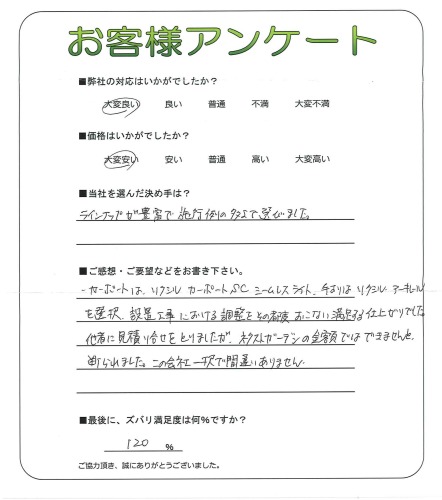 お客様アンケート
■弊社の対応はいかがでしたか?
大変良い 良い 普通 不満 大変不満
■価格はいかがでしたか?
大変安い 安い 普通 高い 大変高い
■当社を選んだ決め手は?
ラインナップが豊富で施行例の多さで選びました。
■ご感想・ご要望などをお書き下さい。
・カーポートは、リクシル カーポートSC シームレスライト、手すりは リクシル アーキレール
を選択、設置工事における調整をその都度おこない満足する仕上がりでした。
他者に見積り合せをとりましたが、ネクストガーデンの金額ではできませんと、
断られました。この会社一択で間違いありません。
■最後に、ズバリ満足度は何%ですか?
120 %
ご協力頂き、誠にありがとうございました。